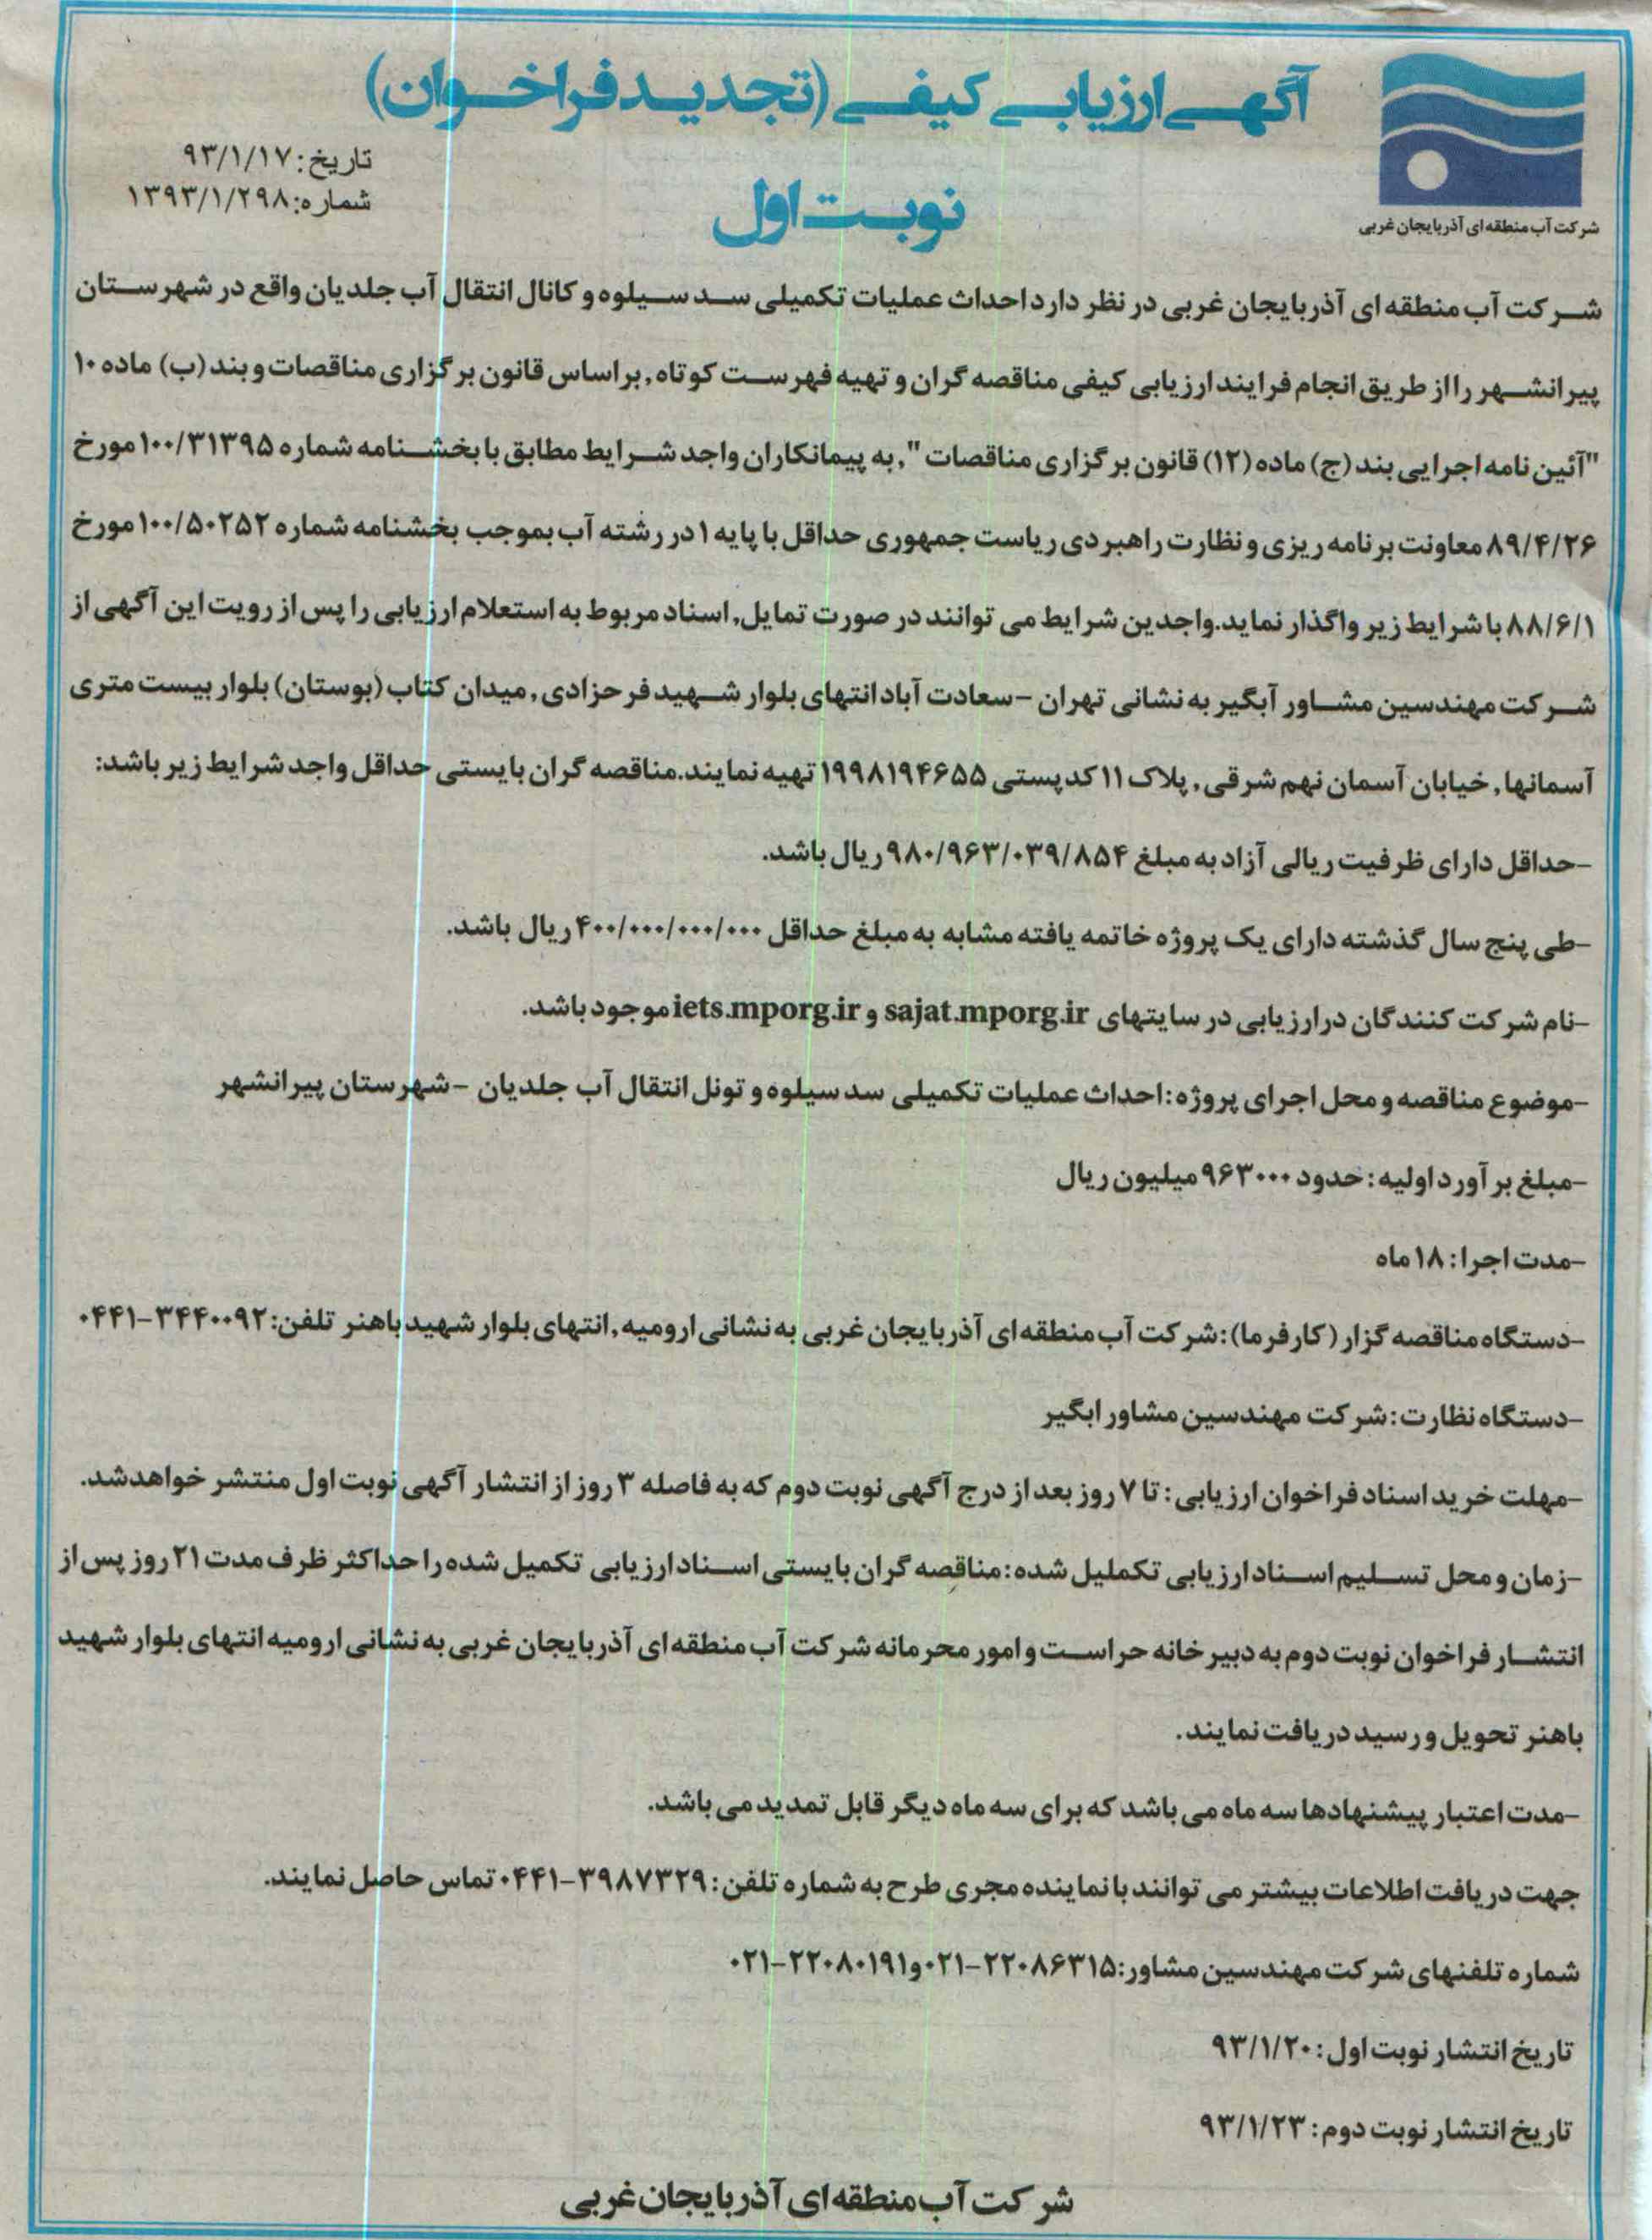 آگهی ارزیابی کیفی (تجدید فراخوان)
تاریخ: ۹۳/۱/۱۷
شماره: ۱۳۹۳/۱/۲۹۸
نوبت اول
شرکت آب منطقه ای آذربایجان غربی
شرکت آب منطقه ای آذربایجان غربی در نظر دارد احداث عملیات تکمیلی سد سیلوه و کانال انتقال آب جلدیان واقع در شهرستان
پیرانشهر را از طریق انجام فرایند ارزیابی کیفی مناقصه گران و تهیه فهرست کوتاه, براساس قانون برگزاری مناقصات و بند (ب) ماده ۱۰
"آئین نامه اجرایی بند (ج) ماده (۱۲) قانون برگزاری مناقصات ", به پیمانکاران واجد شرایط مطابق با بخشنامه شماره ۱۰۰/۳۱۳۹۵ مورخ
۸۹/۴/۲۶ معاونت برنامه ریزی و نظارت راهبردی ریاست جمهوری حداقل با پایه ۱ در رشته آب بموجب بخشنامه شماره ۱۰۰/۵۰۲۵۲ مورخ
۸۸/۶/۱ با شرایط زیر واگذار نماید. واجدین شرایط می توانند در صورت تمایل, اسناد مربوط به استعلام ارزیابی را پس از رویت این آگهی از
شرکت مهندسین مشاور آبگیر به نشانی تهران - سعادت آباد انتهای بلوار شهید فرحزادی, میدان کتاب (بوستان) بلوار بیست متری
آسمانها, خیابان آسمان نهم شرقی, پلاک ۱۱ کد پستی ۱۹۹۸۱۹۴۶۵۵ تهیه نمایند. مناقصه گران بایستی حداقل واجد شرایط زیر باشد:
-حداقل دارای ظرفیت ریالی آزاد به مبلغ ۹۸۰/۹۶۳/۰۳۹/۸۵۴ ریال باشد.
-طی پنج سال گذشته دارای یک پروژه خاتمه یافته مشابه به مبلغ حداقل ۴۰۰/۰۰۰/۰۰۰/۰۰۰ ریال باشد.
-نام شرکت کنندگان در ارزیابی در سایتهای sajat.mporg.ir و iets.mporg.ir موجود باشد.
-موضوع مناقصه و محل اجرای پروژه: احداث عملیات تکمیلی سد سیلوه و تونل انتقال آب جلدیان - شهرستان پیرانشهر
-مبلغ برآورد اولیه: حدود ۹۶۳۰۰۰ میلیون ریال
-مدت اجرا: ۱۸ ماه
-دستگاه مناقصه گزار (کارفرما): شرکت آب منطقه ای آذربایجان غربی به نشانی ارومیه, انتهای بلوار شهید باهنر تلفن: ۳۴۴۰۰۹۲-۰۴۴۱
-دستگاه نظارت: شرکت مهندسین مشاور ابگیر
-مهلت خرید اسناد فراخوان ارزیابی: تا ۷ روز بعد از درج آگهی نوبت دوم که به فاصله ۳ روز از انتشار آگهی نوبت اول منتشر خواهد شد.
-زمان و محل تسلیم اسناد ارزیابی تکملیل شده: مناقصه گران بایستی اسناد ارزیابی تکمیل شده را حداکثر ظرف مدت ۲۱ روز پس از
انتشار فراخوان نوبت دوم به دبیرخانه حراست و امور محرمانه شرکت آب منطقه ای آذربایجان غربی به نشانی ارومیه انتهای بلوار شهید
باهنر تحویل و رسید دریافت نمایند.
-مدت اعتبار پیشنهادها سه ماه می باشد که برای سه ماه دیگر قابل تمدید می باشد.
جهت دریافت اطلاعات بیشتر می توانند با نماینده مجری طرح به شماره تلفن: ۳۹۸۷۳۲۹-۰۴۴۱ تماس حاصل نمایند.
شماره تلفنهای شرکت مهندسین مشاور: ۲۲۰۸۶۳۱۵-۰۲۱ و ۲۲۰۸۰۱۹۱-۰۲۱
تاریخ انتشار نوبت اول: ۹۳/۱/۲۰
تاریخ انتشار نوبت دوم: ۹۳/۱/۲۳
شرکت آب منطقه ای آذربایجان غربی